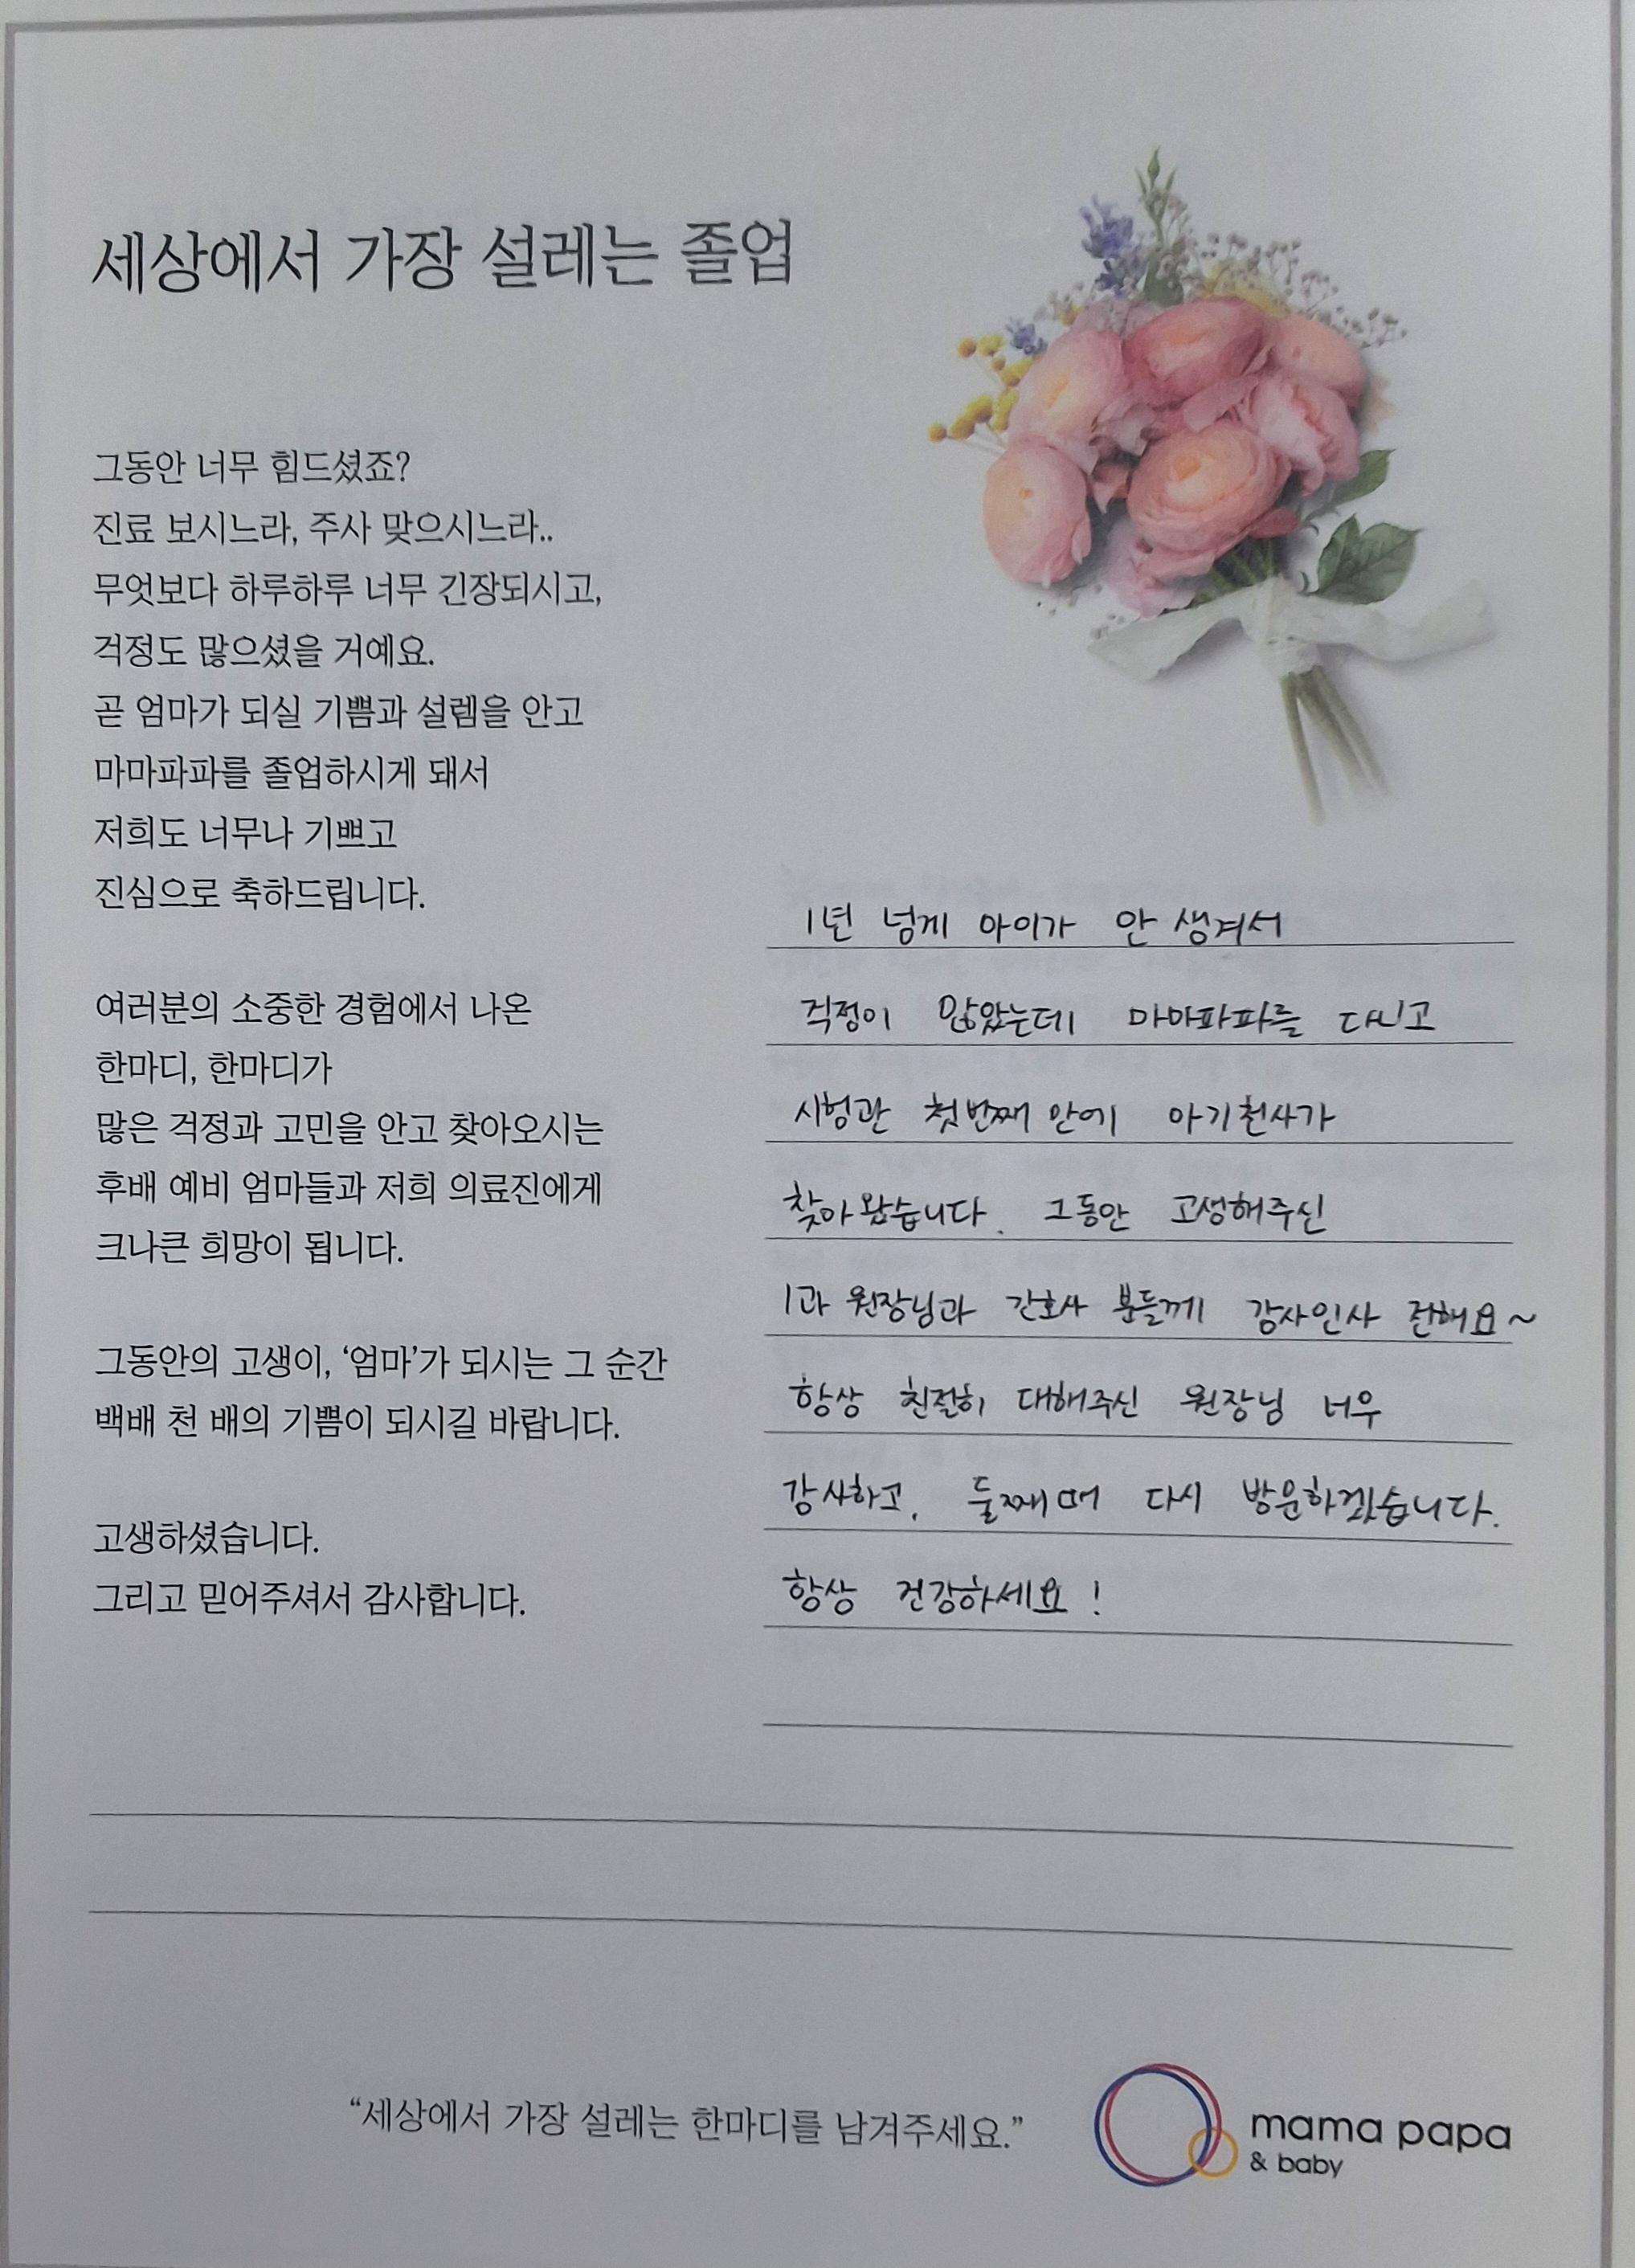 세상에서 가장 설레는 졸업
그동안 너무 힘드셨죠?
진료 보시느라, 주사 맞으시느라..
무엇보다 하루하루 너무 긴장되시고,
걱정도 많으셨을 거예요.
곧 엄마가 되실 기쁨과 설렘을 안고
마마파파를 졸업하시게 돼서
저희도 너무나 기쁘고
진심으로 축하드립니다.
여러분의 소중한 경험에서 나온
한마디, 한마디가
많은 걱정과 고민을 안고 찾아오시는
후배 예비 엄마들과 저희 의료진에게
크나큰 희망이 됩니다.
그동안의 고생이, ‘엄마’가 되시는 그 순간
백배 천 배의 기쁨이 되시길 바랍니다.
고생하셨습니다.
그리고 믿어주셔서 감사합니다.
1년 넘게 아이가 안 생겨서
걱정이 많았는데 마마파파를 다니고
시험관 첫번째 만에 아기천사가
찾아왔습니다. 그동안 고생해주신
1과 원장님과 간호사 분들께 감사인사 전해요~
항상 친절히 대해주신 원장님 너무
감사하고, 둘째때 다시 방문하겠습니다.
항상 건강하세요!
“세상에서 가장 설레는 한마디를 남겨주세요.”
mama papa
& baby